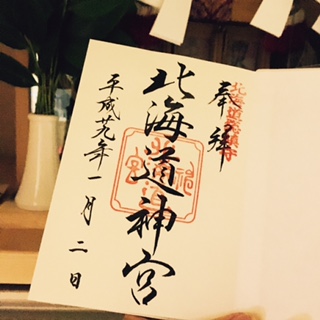 奉拝
北海道神宮
平成廿九年一月二日